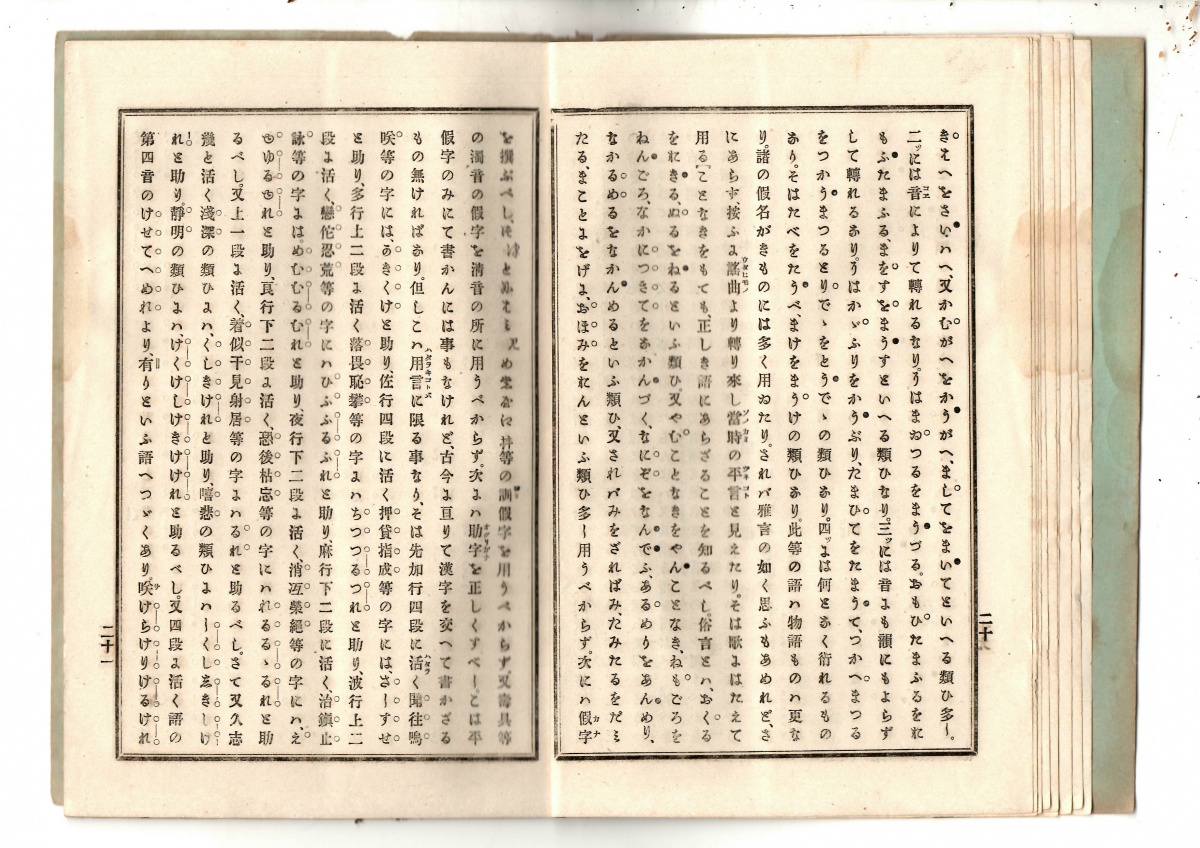 きえへをさいハへ、又かむがへをかうがへ、ましてをまいてといへる類ひ多し。
二ッには音によりて轉れるなり。うはまおつるをまうづる。おもひたまふるをれ
もふたまふる、まをすをまうすといへる類ひなり。三ッには音よも韻にもよらず
して轉れるあり。うはかゞふりをかうぶり、たまひてをたまうて、つかへまつる
をつかうまつるとりでゝをとうでゝの類ひあり。四ッよは何とあく衍れるもの
あり。そはたべをたうべ、まけをまうけの類ひあり。此等の語ハ物語ものハ更な
り。諸の假名がきものには多く用ゐたり。されバ雅言の如く思ふもあめれど、さ
にあらず、按ふよ謠曲より轉り來し當時の平言と見えたり。そは歌よはたえて
用ることなきをもても、正しき語にあらざることを知るべし。俗言とハ、おくる
をにきる、ぬるをねるといふ類ひ、又やむことなきをやんことなき、ねもごろを
ねんごろ、なかにつきてをあかんづく、なにぞをなんでふ、あるめりをあんめり、
なかるめるをなかんめるといふ類ひ、又されバみをざればみ、たみたるをだミ
たる、まことよをげよ、おほみをれんといふ類ひ多し用うべからず。次にハ假字
を撰ぶべし。 等の訓假字を用うべからず又濁具等
の濁音の假字を淸音の所に用うべからず。次よハ助字を正しくすべし。こは平
假字のみにて書かんには事もなけれど、古今よ亘りて漢字を交へて書かざる
もの無ければあり。但しこハ用言に限る事なり、そは先加行四段に活く聞往鳴
咲等の字にはあきくけと助り、佐行四段に活く押貸指成等の字には、ざしすせ
と助り、多行上二段よ活く落畏恥攀等の字よハちつつるつれと助り、波行上二
段よ活く、戀佗忍荒等の字にハひふふるふれと助り、麻行下二段に活く、治鎭止
詠等の字よは。めむむるむれと助り、夜行下二段よ活く、消冱榮絕等の字にハ、え
ゆゆるゆれと助り、良行下二段よ活く、恐後枯忘等の字にハれるるゝるれと助
るべし。又上一段よ活く、着似干見射居等の字よハるれと助るべし。さて又久志
幾と活く淺深の類ひよハ、くしきけれと助り、嘻悲の類ひよハしくししきしけ
れと助り。靜明の類ひよハけくけしけきけけれと助るべし。又四段よ活く語の
第四音のけせてへめれより、有りといふ語へつゞくあり。咲けらけりけるけれ
二十一